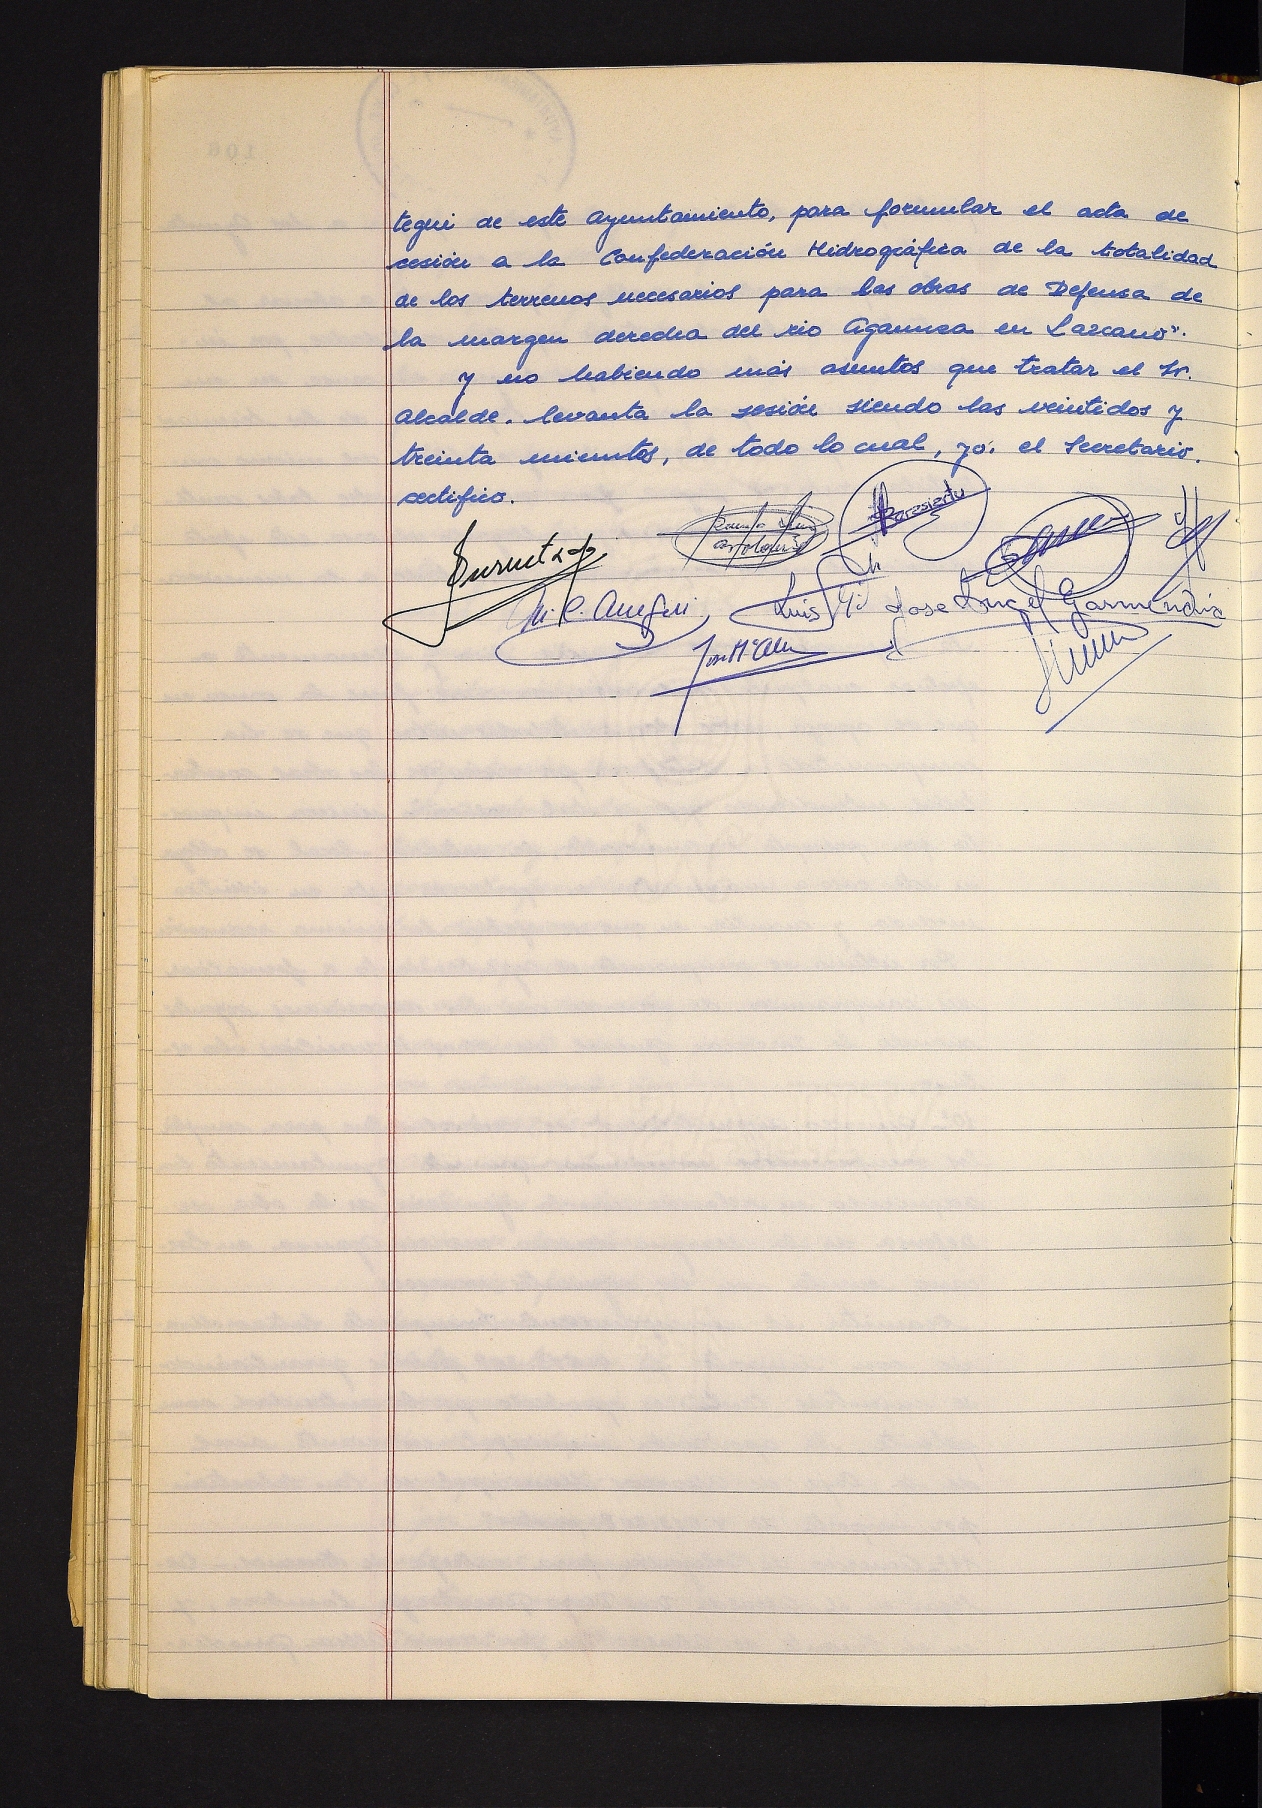 tegui de este Ayuntamiento, para formular el acta de
cesión a la Confederación Hidrográfica de la totalidad
de los terrenos necesarios para las obras de Defensa de
la margen derecha del rio Agaunza en Lazcano".
y no habiendo más asuntos que tratar el Sr.
Alcalde. levanta la sesión siendo las veintidos y
treinta minutos, de todo lo cual, yo. el Secretario.
certifico.
Luis Mª Jose Angel Garmendia
Jose Mª